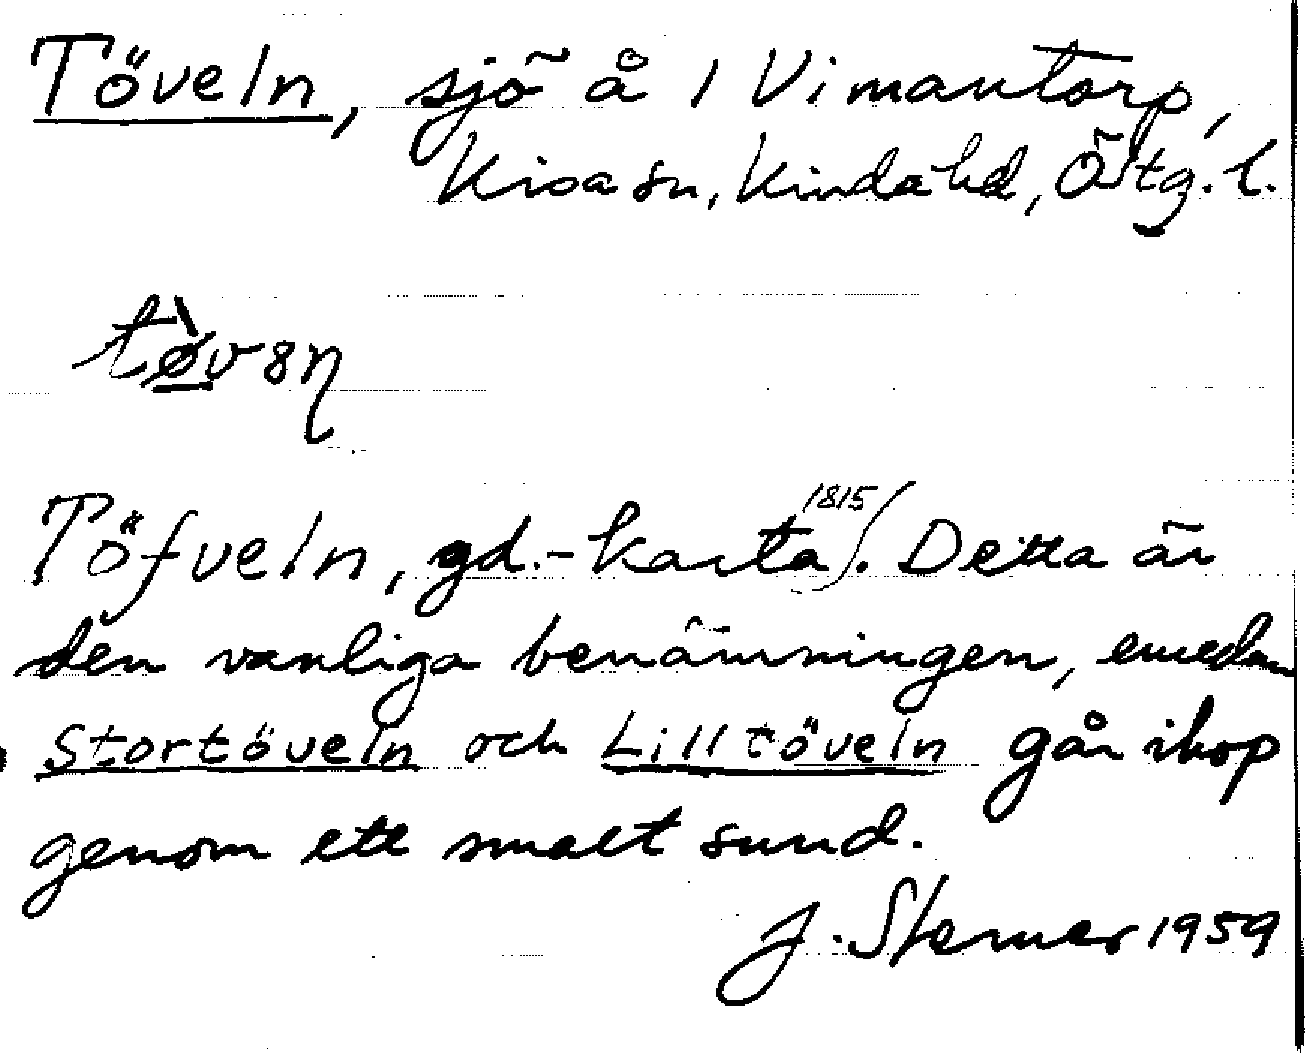 Töveln, sjö å 1 Vimantorp,
Kisa sn, Kinda hd, Östg. l.
tø̀v8η
Töfveln, gd.-karta 1815. Detta är
den vanliga benämningen, emedan
Stortöveln och Lilltöveln går ihop
genom ett smalt sund.
J. Sterner 1959